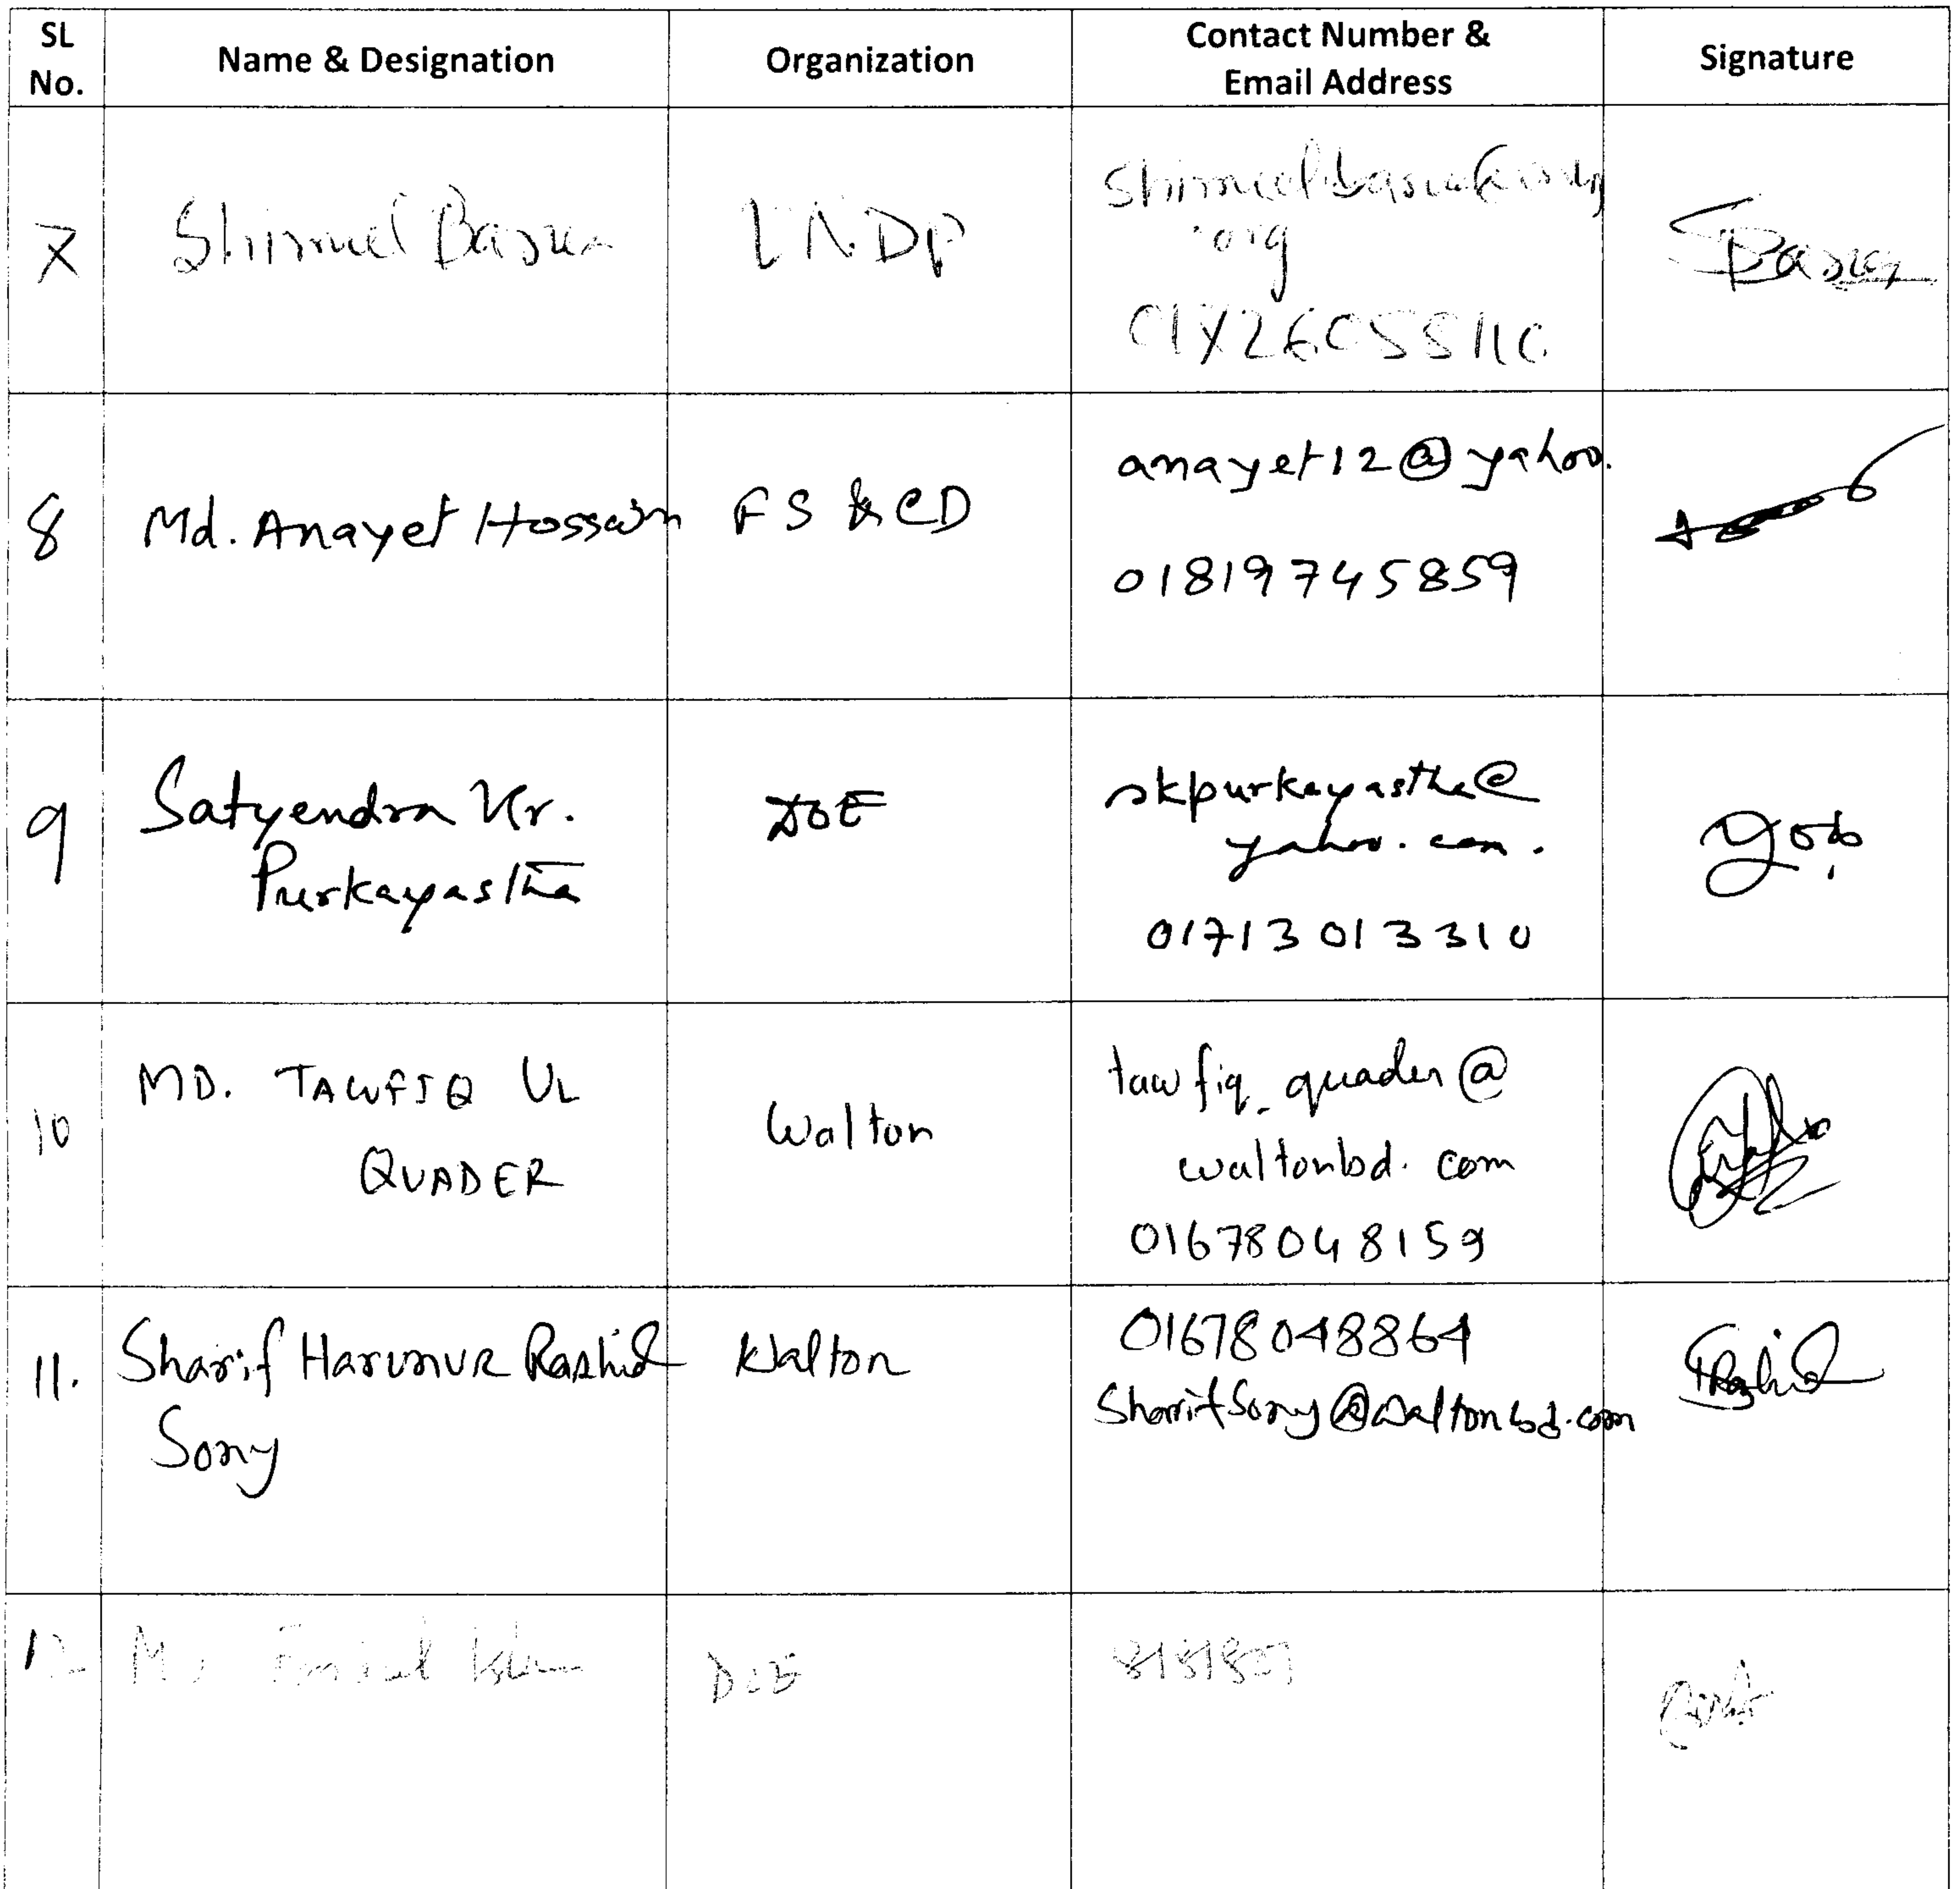 SL No.
Name & Designation
Organization
Contact Number &
Email Address
Signature
7
Shimul Basua
UNDP
.org
SBasua
8
Md. Anayet Hossain
FS & CD
anayet12@yahoo.
01819745859
9
Satyendra Kr.
Purkayastha
DOE
skpurkayastha@
yahoo.com.
01713013310
10
MD. TAWFIQ UL
QUADER
Walton
tawfiq_quader@
waltonbd.com
01678048159
11.
Sharif Harunur Rashid
Sony
Walton
01678048864
SharifSony@waltonbd.com
SRashid
12
Islam
DOE